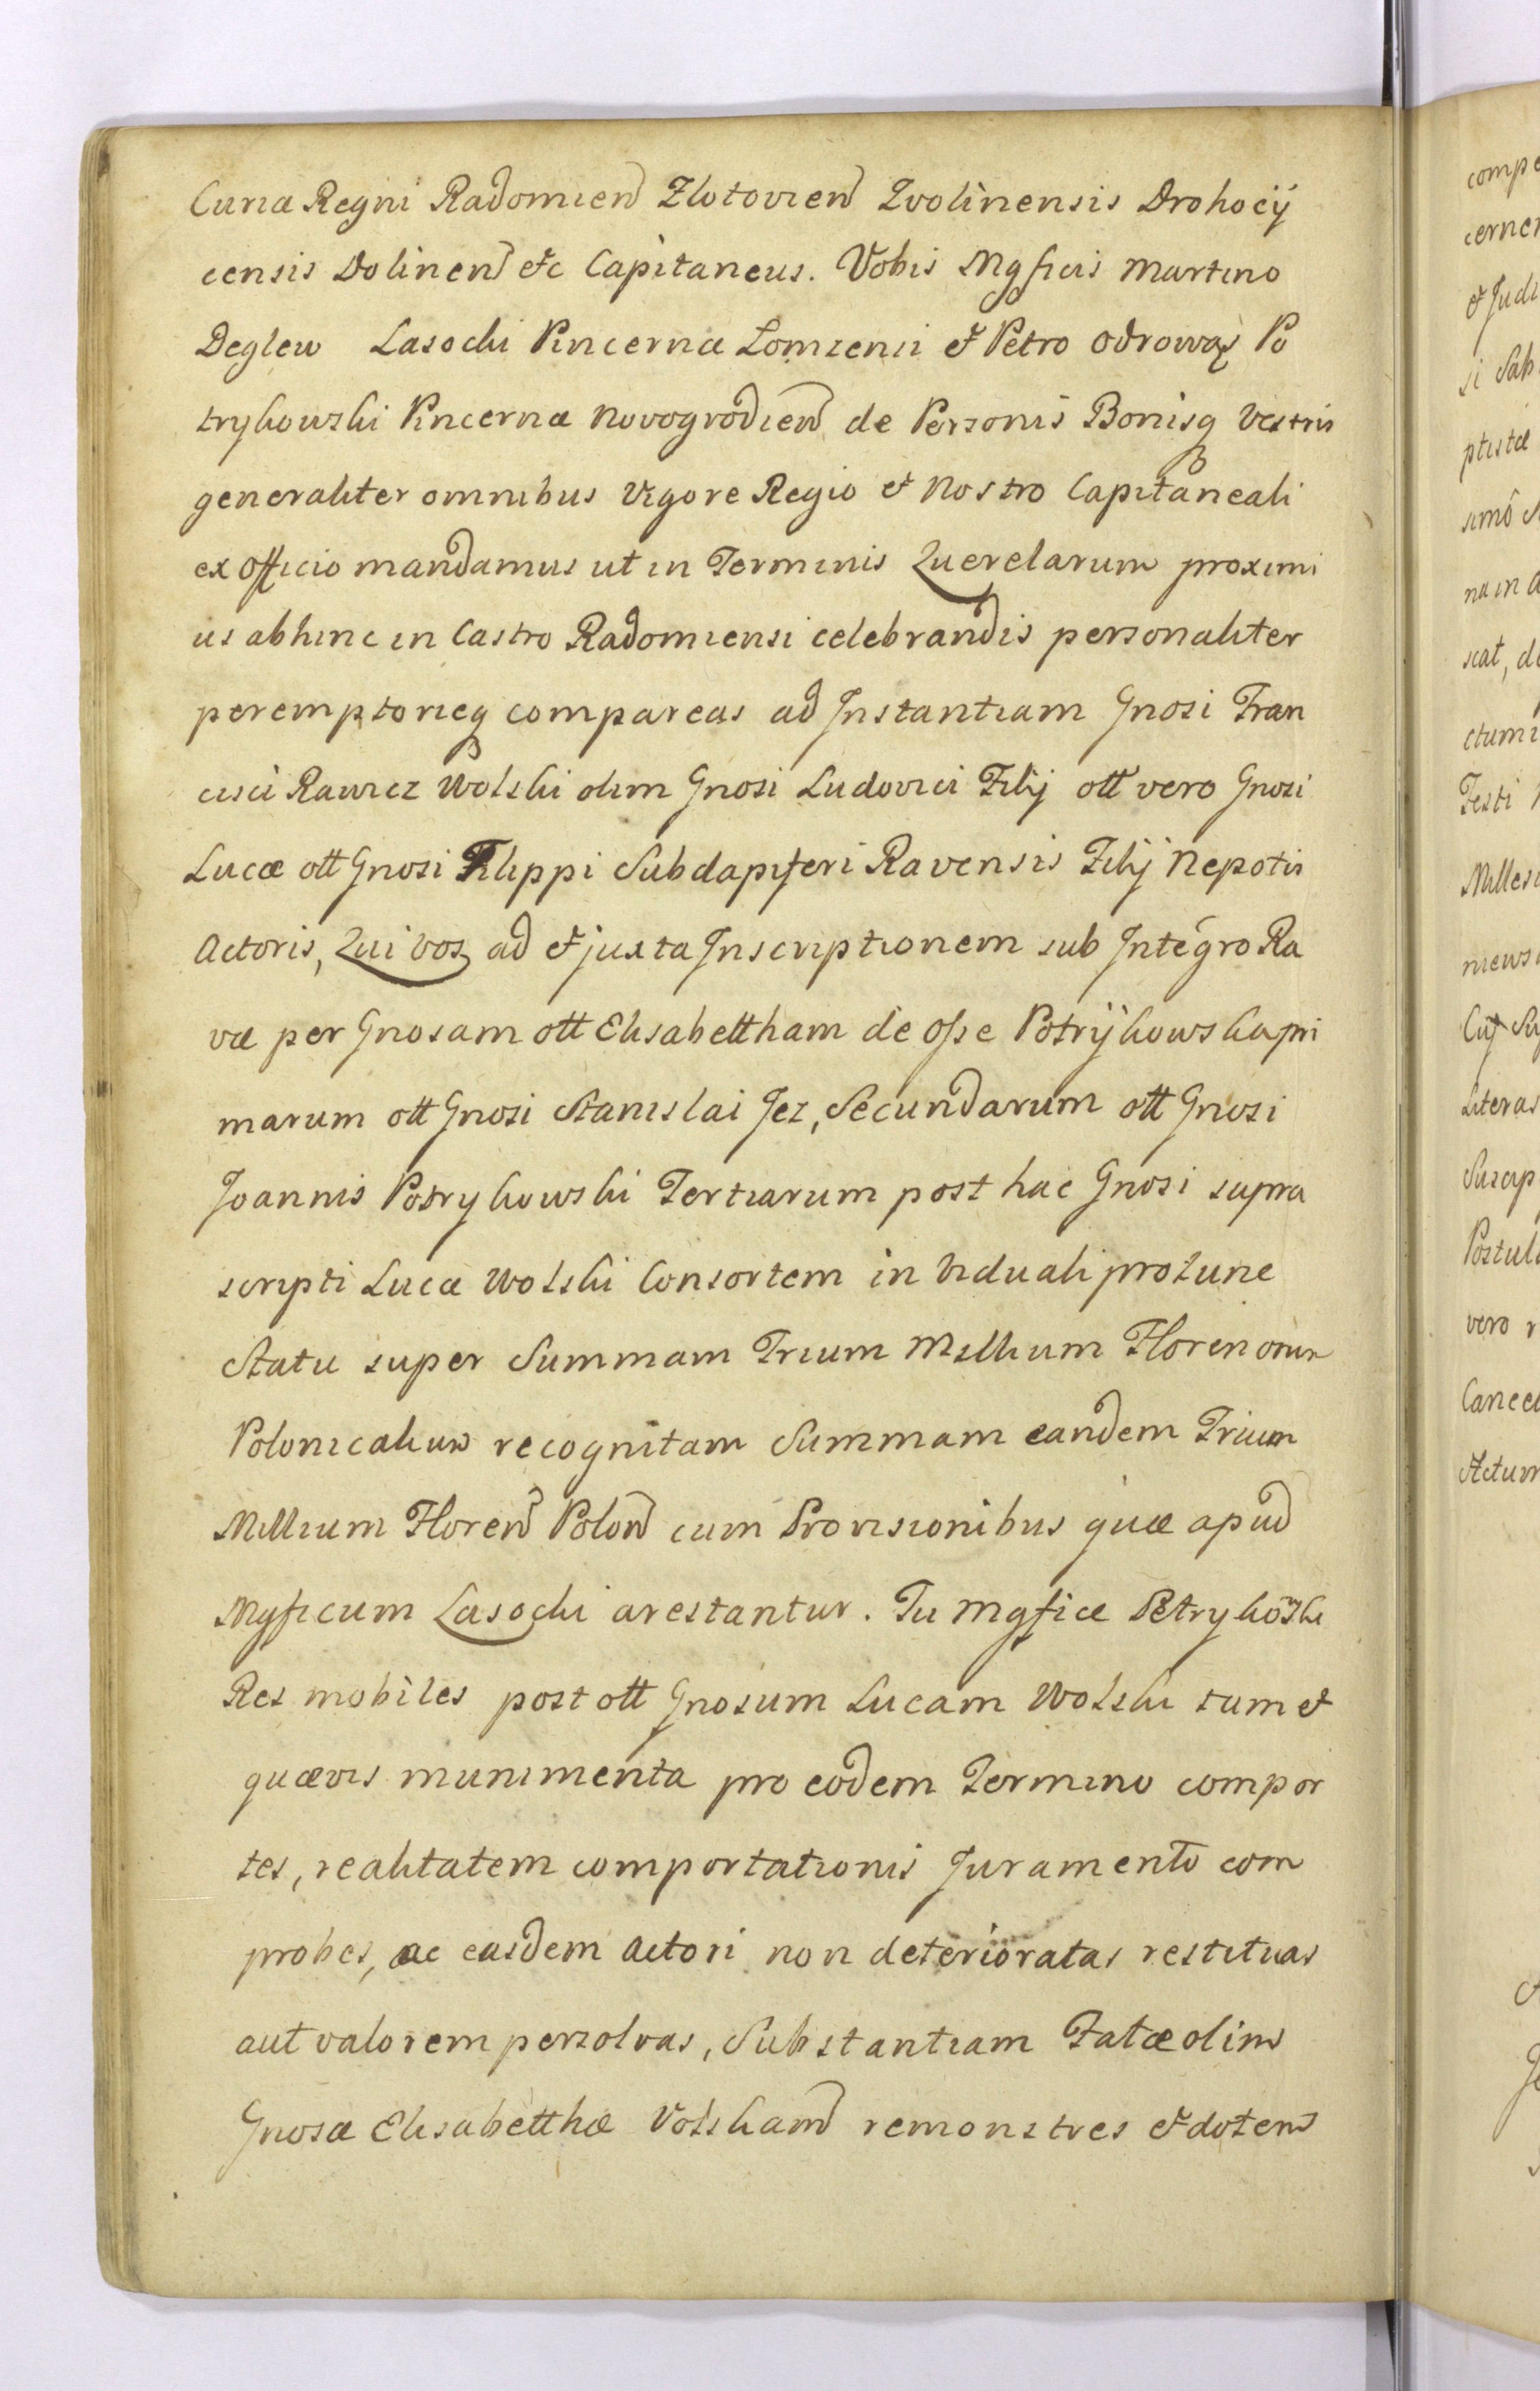 Curiæ Regni Radomien Zlotovien Zvolinensis Drohocÿ
censis Dolinen etc Capitaneus. Vobis Mgficis Martino
Deglew Lasocki Pincernæ Lomzensi & Petro Odrowąz Po
trykowski Pincernæ Novogrodien de Personis Bonisq Vestris
generaliter omnibus Vigore Regio & Nostro Capitaneali
ex Officio mandamus ut in Terminis Querelarum proximi
us abhinc in Castro Radomiensi celebrandis personaliter
peremptorieq compareas ad Instantiam Gnosi Fran
cisci Rawicz Wolski olim Gnosi Ludovici Filij ott vero Gnosi
Lucæ ott Gnosi Filippi Subdapiferi Ravensis Filij Nepotis
Actoris, Qui vos ad & juxta Inscriptionem sub Integro Ra
væ per Gnosam ott Elisabettham de Osse Potrÿkowska pri
marum ott Gnosi Stanislai Jez, Secundarum ott Gnosi
Joannis Potrykowski Tertiarum post hac Gnosi supra
scripti Lucæ Wolski Consortem in Viduali protunc
Statu super Summam Trium Millium Florenorum
Polonicalium recognitam Summam eandem Trium
Millium Floren Polon cum Provisionibus quæ apud
Mgficum Lasocki arestantur. Tu Mgfice Petrykowski
Res mobiles post ott Gnosum Lucam Wolski tum &
quævis munimenta pro eodem Termino compor
tes, realitatem comportationis Juramento com
probes, ac easdem Actori non deterioratas restituas
aut valorem persolvas, Substantiam Fatæ olim
Gnosæ Elisabetthæ Volskam remonstres & dotem
compe
cerner
& Judi
si Sab
ptistæ
simô
na in
scat, de
ctum
Testi
Milles
niews
Cuj Su
Literas
Suscep
Postul
vero r
Cancel
Actum